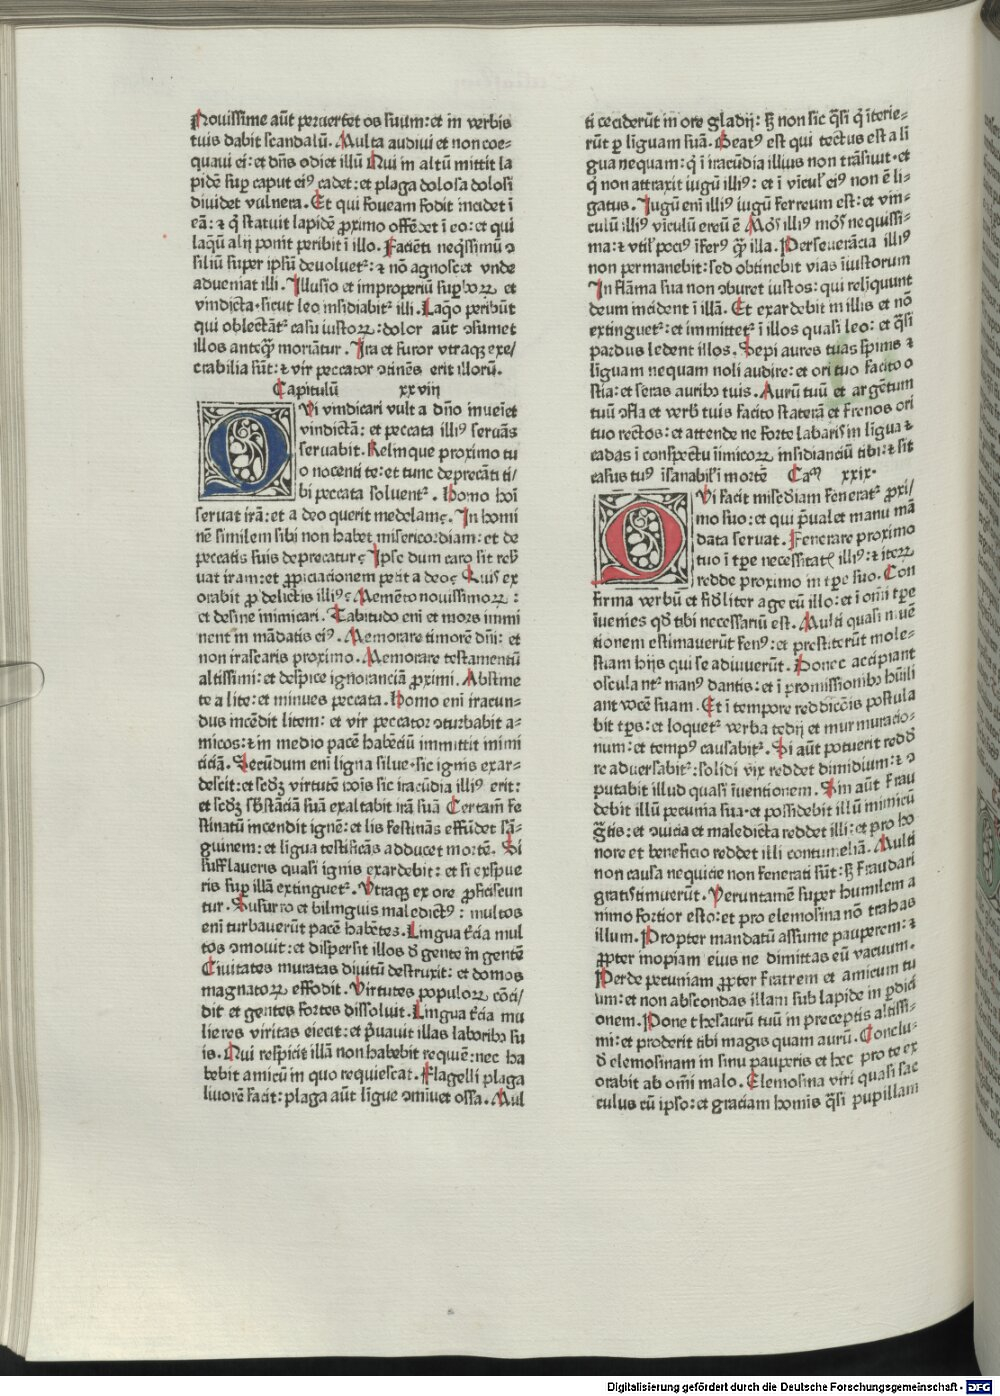 Nouissime aūt peruertet os suum: et in verbis
tuis dabit scandalū. Multa audiui et non coe-
quaui ei: et dn̄s odiet illū Qui in altū mittit la
pidē suꝑ caput eiꝰ cadet: et plaga dolosa dolosi
diuidet vulnera. Et qui foueam fodit incidet ī
eā: ⁊ q̇ statuit lapidē ꝓximo offēdet ī eo: et qui
laqūū alij ponit peribit ī illo. Faciēti neq̄ssimū ꝯ
siliū super ipsū deuoluetᷣ: ⁊ nō agnoscet vnde
adueniat illi. Illusio et improperiū suꝑboꝝ et
vindicta sicut leo insidiabitᷣ illi. Laq̄o peribūt
qui oblectātᷣ casu iustoꝝ: dolor aūt ꝯsumet
illos anteq̄ꝫ moriātur. Ira et furor vtraqꝫ exe/
crabilia sūt: ⁊ vir peccator ꝯtinēs erit illorū.
Capitulū xxviij
QVi vindicari vult a dn̄o inueīet
vindictā: et peccata illiꝰ seruās
seruabit. Relinque proximo tu
o nocenti te: et tunc deprecāti ti/
bi peccata soluentᷣ. Homo hoī
seruat irā: et a deo querit medelam. In homi
nē similem sibi non habet misericordiam: et de
peccatis suis deprecatur Ipse dum caro sit res̄
uat iram: et ꝓpiciacionem petit a deo Quis ex
orabit ꝓ delictis illiꝰ Memēto nouissimoꝝ:
et desine inimicari. Tabitudo enī et mors immi
nent in mādatis eiꝰ. Memorare timorē dn̄i: et
non irascaris proximo. Memorare testamentū
altissimi: et despice ignoranciā ꝓximi. Abstine
te a lite: et minues peccata. Homo enī iracun-
dus incēdit litem: et vir peccator ꝯturbabit a-
micos: ⁊ in medio pacē habēciū immittit inimi
ciciā. Secūdum enī ligna silue sic ignis exar-
descit: et secdꝫ virtutē hoīs sic iracūdia illiꝰ erit:
et secdꝫ sb̄stāciā suā exaltabit irā suā Certam̄ fe
stinatū incendit ignē: et lis festinās effūdet sā-
guinem: et ligua testificās adducet mortē. Si
sufflaueris quasi ignis exardebit: et si exspue
ris suꝑ illā extinguetᷣ. Vtraqꝫ ex ore ꝓficiscun
tur. Susurro et bilinguis maledictꝰ: multos
enī turbauerūt pacē habētes. Lingua t̄cia mul
tos ꝯmouit: et dispersit illos d̄ gente in gentē
Ciuitates muratas diuitū destruxit: et domos
magnatoꝝ effodit. Virtutes populoꝝ cōci/
dit et gentes fortes dissoluit. Lingua t̄cia mu
lieres viritas eiecit: et p̄uauit illas laboribꝰ su
is. Qui respicit illā non habebit requiē: nec ha
bebit amicū in quo requiescat. Flagelli plaga
liuorē facit: plaga aūt ligue ꝯminuet ossa. Mul
ti ceciderūt in ore gladij: sꝫ non sic q̄si q̇ īterie-
rūt ꝑ liguam suā. Beatꝰ est qui tectus est a li
gua nequam: q̇ ī iracūdia illius non trāsiuit et
q̇ non attraxit iugū illiꝰ: et ī vīculꝭ eiꝰ non ē li-
gatus. Iugū enī illiꝰ iugū ferreum est: et vin-
culū illiꝰ vīculū ereū ē Mors illiꝰ mors nequissi-
ma: ⁊ vtilꝭ pociꝰ īferꝰ q̄ꝫ illa. Perseuerācia illiꝰ
non permanebit: sed obtinebit vias īiustorum
In flāma sua non ꝯburet iustos: qui relīquunt
deum incident ī illā. Et exardebit in illis et nō
extinguetᷣ: et immittetᷣ ī illos quasi leo: et q̄si
pardus ledent illos. Sepi aures tuas spinis ⁊
līguam nequam noli audire: et ori tuo facito o
stia: et seras auribꝰ tuis. Aurū tuū et argētum
tuū ꝯfla et verbꝭ tuis facito staterā et frenos ori
tuo rectos: et attende ne forte labaris in līgua ⁊
cadas ī conspectu īimicoꝝ insidianciū tibi: ⁊ sit
casus tuꝰ īsanabilꝭ ī mortē Caᵐ xxix
QVi facit misc̄diam feneratᷣ ꝓxi/
mo suo: et qui p̄ualet manu mā
data seruat. Fenerare proximo
tuo ī tp̄e necessitatꝭ illiꝰ: ⁊ iteꝝ
redde proximo in tp̄e suo. Con
firma verbū et fid̄liter age cū illo: et ī om̄i tp̄e
īuenies qd̄ tibi necessariū est. Multi quasi inuē
tionem estimauerūt fenꝰ: et prestiterūt mole-
stiam hijs qui se adiuuerūt. Donec accipiant
osculantᷣ manꝰ dantis: et ī promissionibꝰ hūili
ant vocē suam. Et ī tempore reddicōis postula
bit tp̄s: et loquetᷣ verba tedij et murmuracio-
num: et tempꝰ causabitᷣ. Si aūt potuerit redd̄
re aduersabitᷣ: solidi vix reddet dimidium: ⁊ ꝯ
putabit illud quasi īuentionem. Sin aūt frau
debit illū pecunia sua et possidebit illū inimicū
ḡtis: et ꝯuicia et maledicta reddet illi: et pro ho
nore et beneficio reddet illi contumeliā. Multi
non causa nequicie non fenerati sūt: sꝫ fraudari
gratis timuerūt. Veruntamē super humilem a
nimo fortior esto: et pro elemosina nō trahas
illum. Propter mandatū assume pauperem: ⁊
ꝓpter inopiam eius ne dimittas eū vacuum.
Perde pecuniam ꝓpter fratrem et amicum tu
um: et non abscondas illam sub lapide in ꝑdici
onem. Pone thesaurū tuū in preceptis altissi-
mi: et proderit tibi magis quam aurū. Conclu-
d̄ elemosinam in sinu pauperis et hec pro te ex
orabit ab om̄i malo. Elemosina viri quasi sac
culus cū ipso: et graciam homis q̄si pupillam
Digitalisierung gefördert durch die Deutsche Forschungsgemeinschaft - DFG